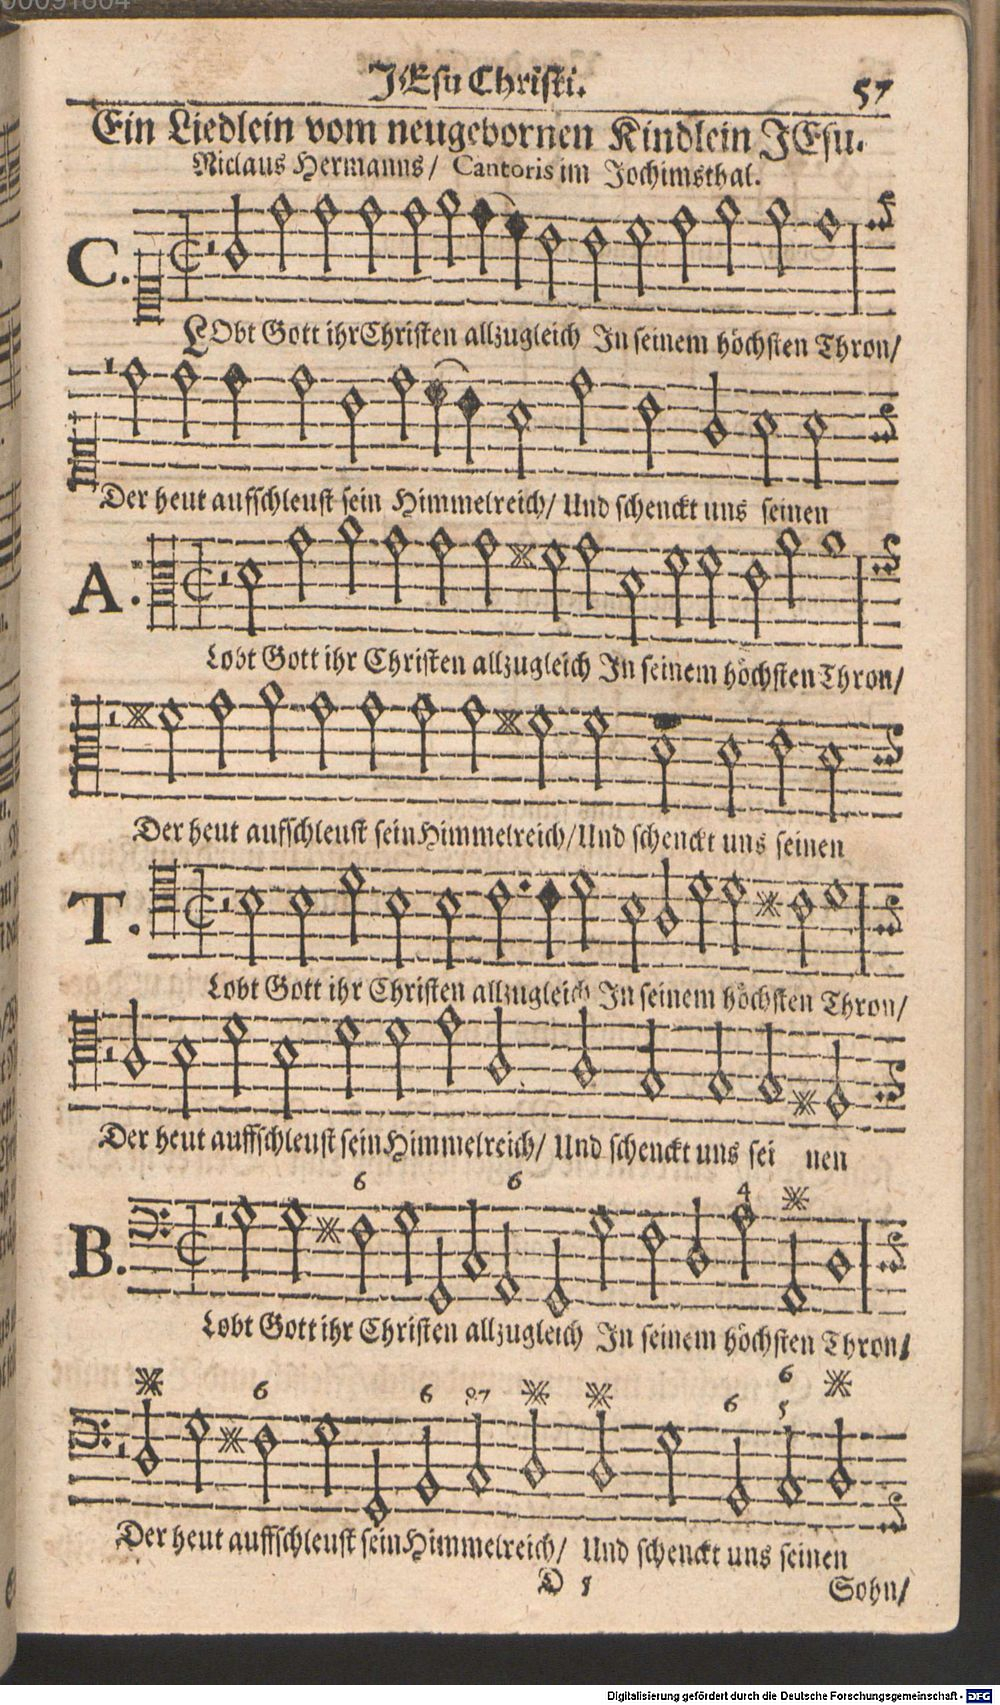 00091604
JEsu Christi.
57
Ein Liedlein vom neugebornen Kindlein JEsu.
Niclaus Hermanns/ Cantoris im Jochimsthal.
C.
LObt Gott ihr Christen allzugleich In seinem höchsten Thron/
Der heut auffschleust sein Himmelreich/ Und schenckt uns seinen
A.
Lobt Gott ihr Christen allzugleich In seinem höchsten Thron/
Der heut auffschleust sein Himmelreich/ Und schenckt uns seinen
T.
Lobt Gott ihr Christen allzugleich In seinem höchsten Thron/
Der heut auffschleust sein Himmelreich/ Und schenckt uns sei nen
6 6 4
B.
Lobt Gott ihr Christen allzugleich In seinem höchsten Thron/
6 6 6 6 5
Der heut auffschleust sein Himmelreich/ Und schenckt uns seinen
D 5
Sohn/
Digitalisierung gefördert durch die Deutsche Forschungsgemeinschaft - DFG